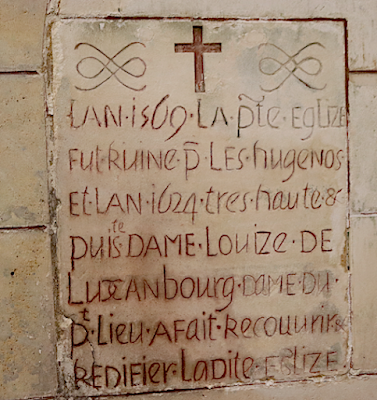 LAN·1569·LA·pñte·EGLIZE
FUT·RUINE·p̄·LES·hUGENOS
ET·LAN·1624·TRES·hAUTE·&
puisᵗᵉ·DAME·LOUIZE·DE
LUXANbOURG·DAME·DU·
pᵗ·LIEU·A·FAIT·RECOUURIR·&
REDIFIER·LADITE·EGLIZE